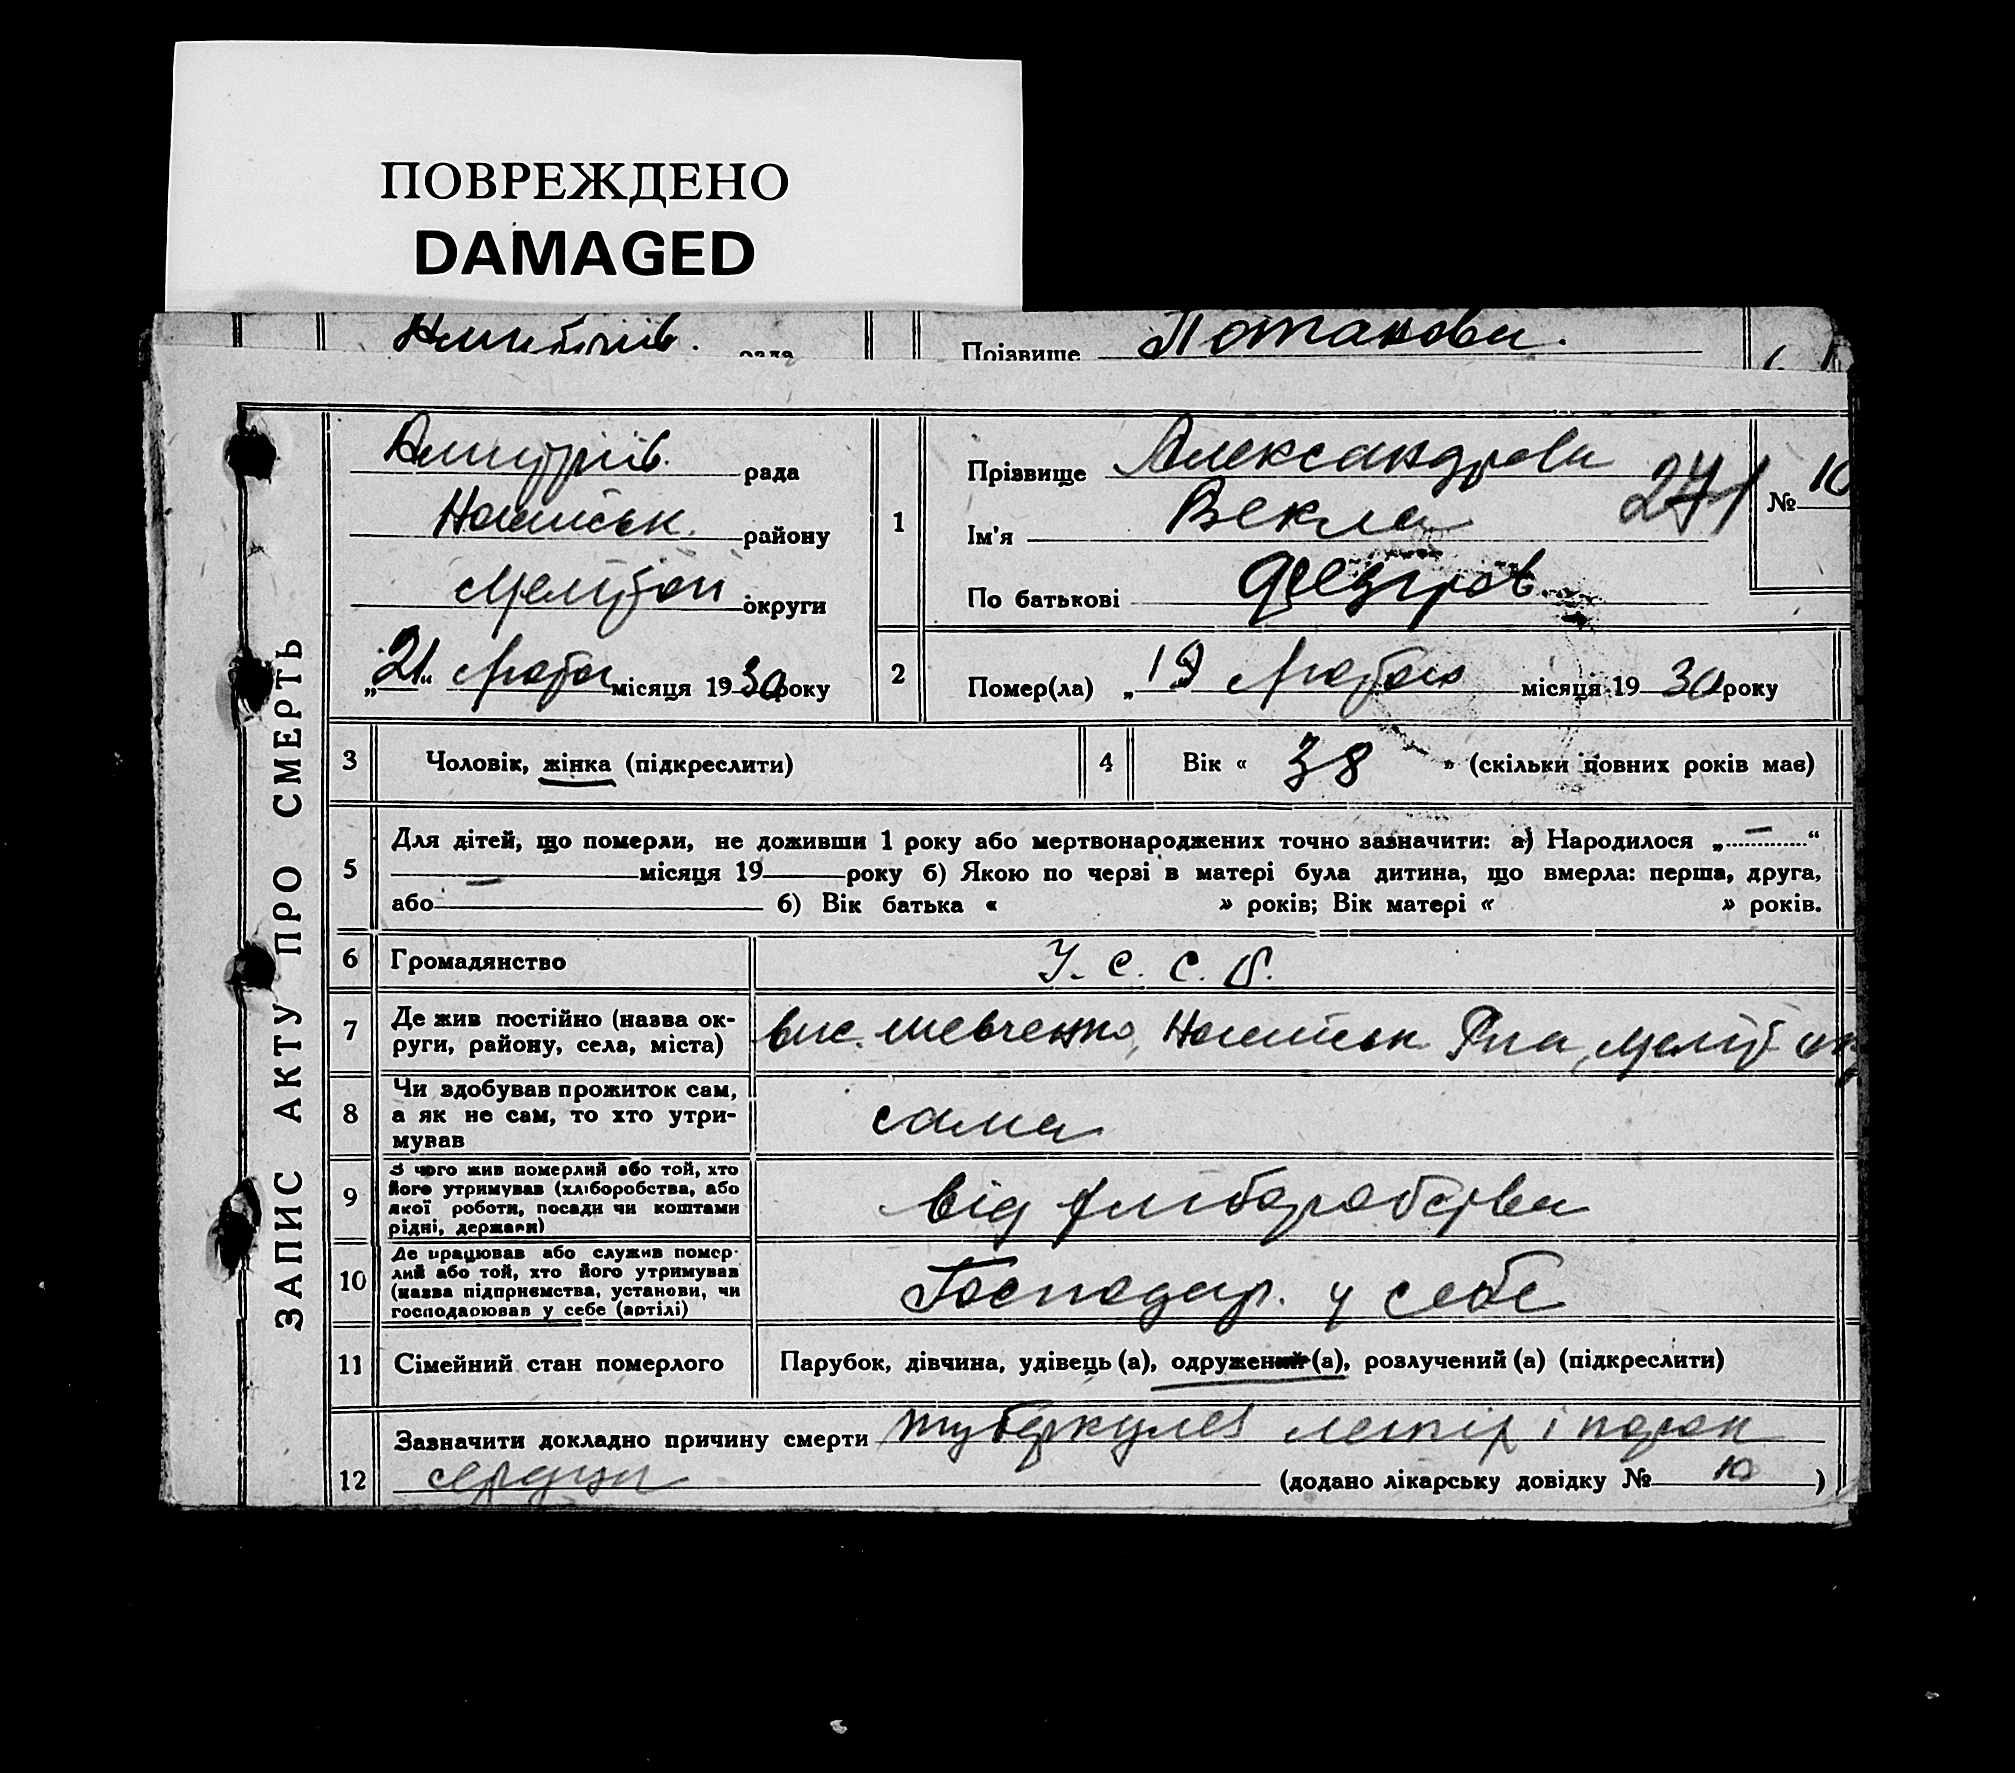 ПОВРЕЖДЕНО
DAMAGED
рада Прізвище Потапова.
Дмитріїв. рада
району
Меліtoп округи
„21“ Лютого місяця 1930 року
1 Прізвище Александрова
Ім'я Векла
По батькові
241
№ 10
2 Помер(ла) „19 Лютого місяця 1930 року
3 Чоловік, жінка (підкреслити)
4 Вік « 38 » (скільки повних років має)
5 Для дітей, що померли, не доживши 1 року або мертвонароджених точно зазначити: а) Народилося „ — “
— місяця 19 року б) Якою по черзі в матері була дитина, що вмерла: перша, друга,
або б) Вік батька « » років; Вік матері « » років.
6 Громадянство У. С. С. Р.
7 Де жив постійно (назва ок-
руги, району, села, міста) вис. Шевченко, Р-на, Меліт ок
8 Чи здобував прожиток сам,
а як не сам, то хто утри-
мував сама
9 З чого жив померлий або той, хто
його утримував (хліборобства, або
якої роботи, посади чи коштами
рідні, держави) від хліборобства
10 Де працював або служив помер-
лий або той, хто його утримував
(назва підприємства, установи, чи
господарював у себе (артілі) Господар. у себе
11 Сімейний стан померлого Парубок, дівчина, удівець (а), одружений (а), розлучений (а) (підкреслити)
12 Зазначити докладно причину смерти туберкулез легких і порок
сердця (додано лікарську довідку № 10 )
ЗАПИС АКТУ ПРО СМЕРТЬ